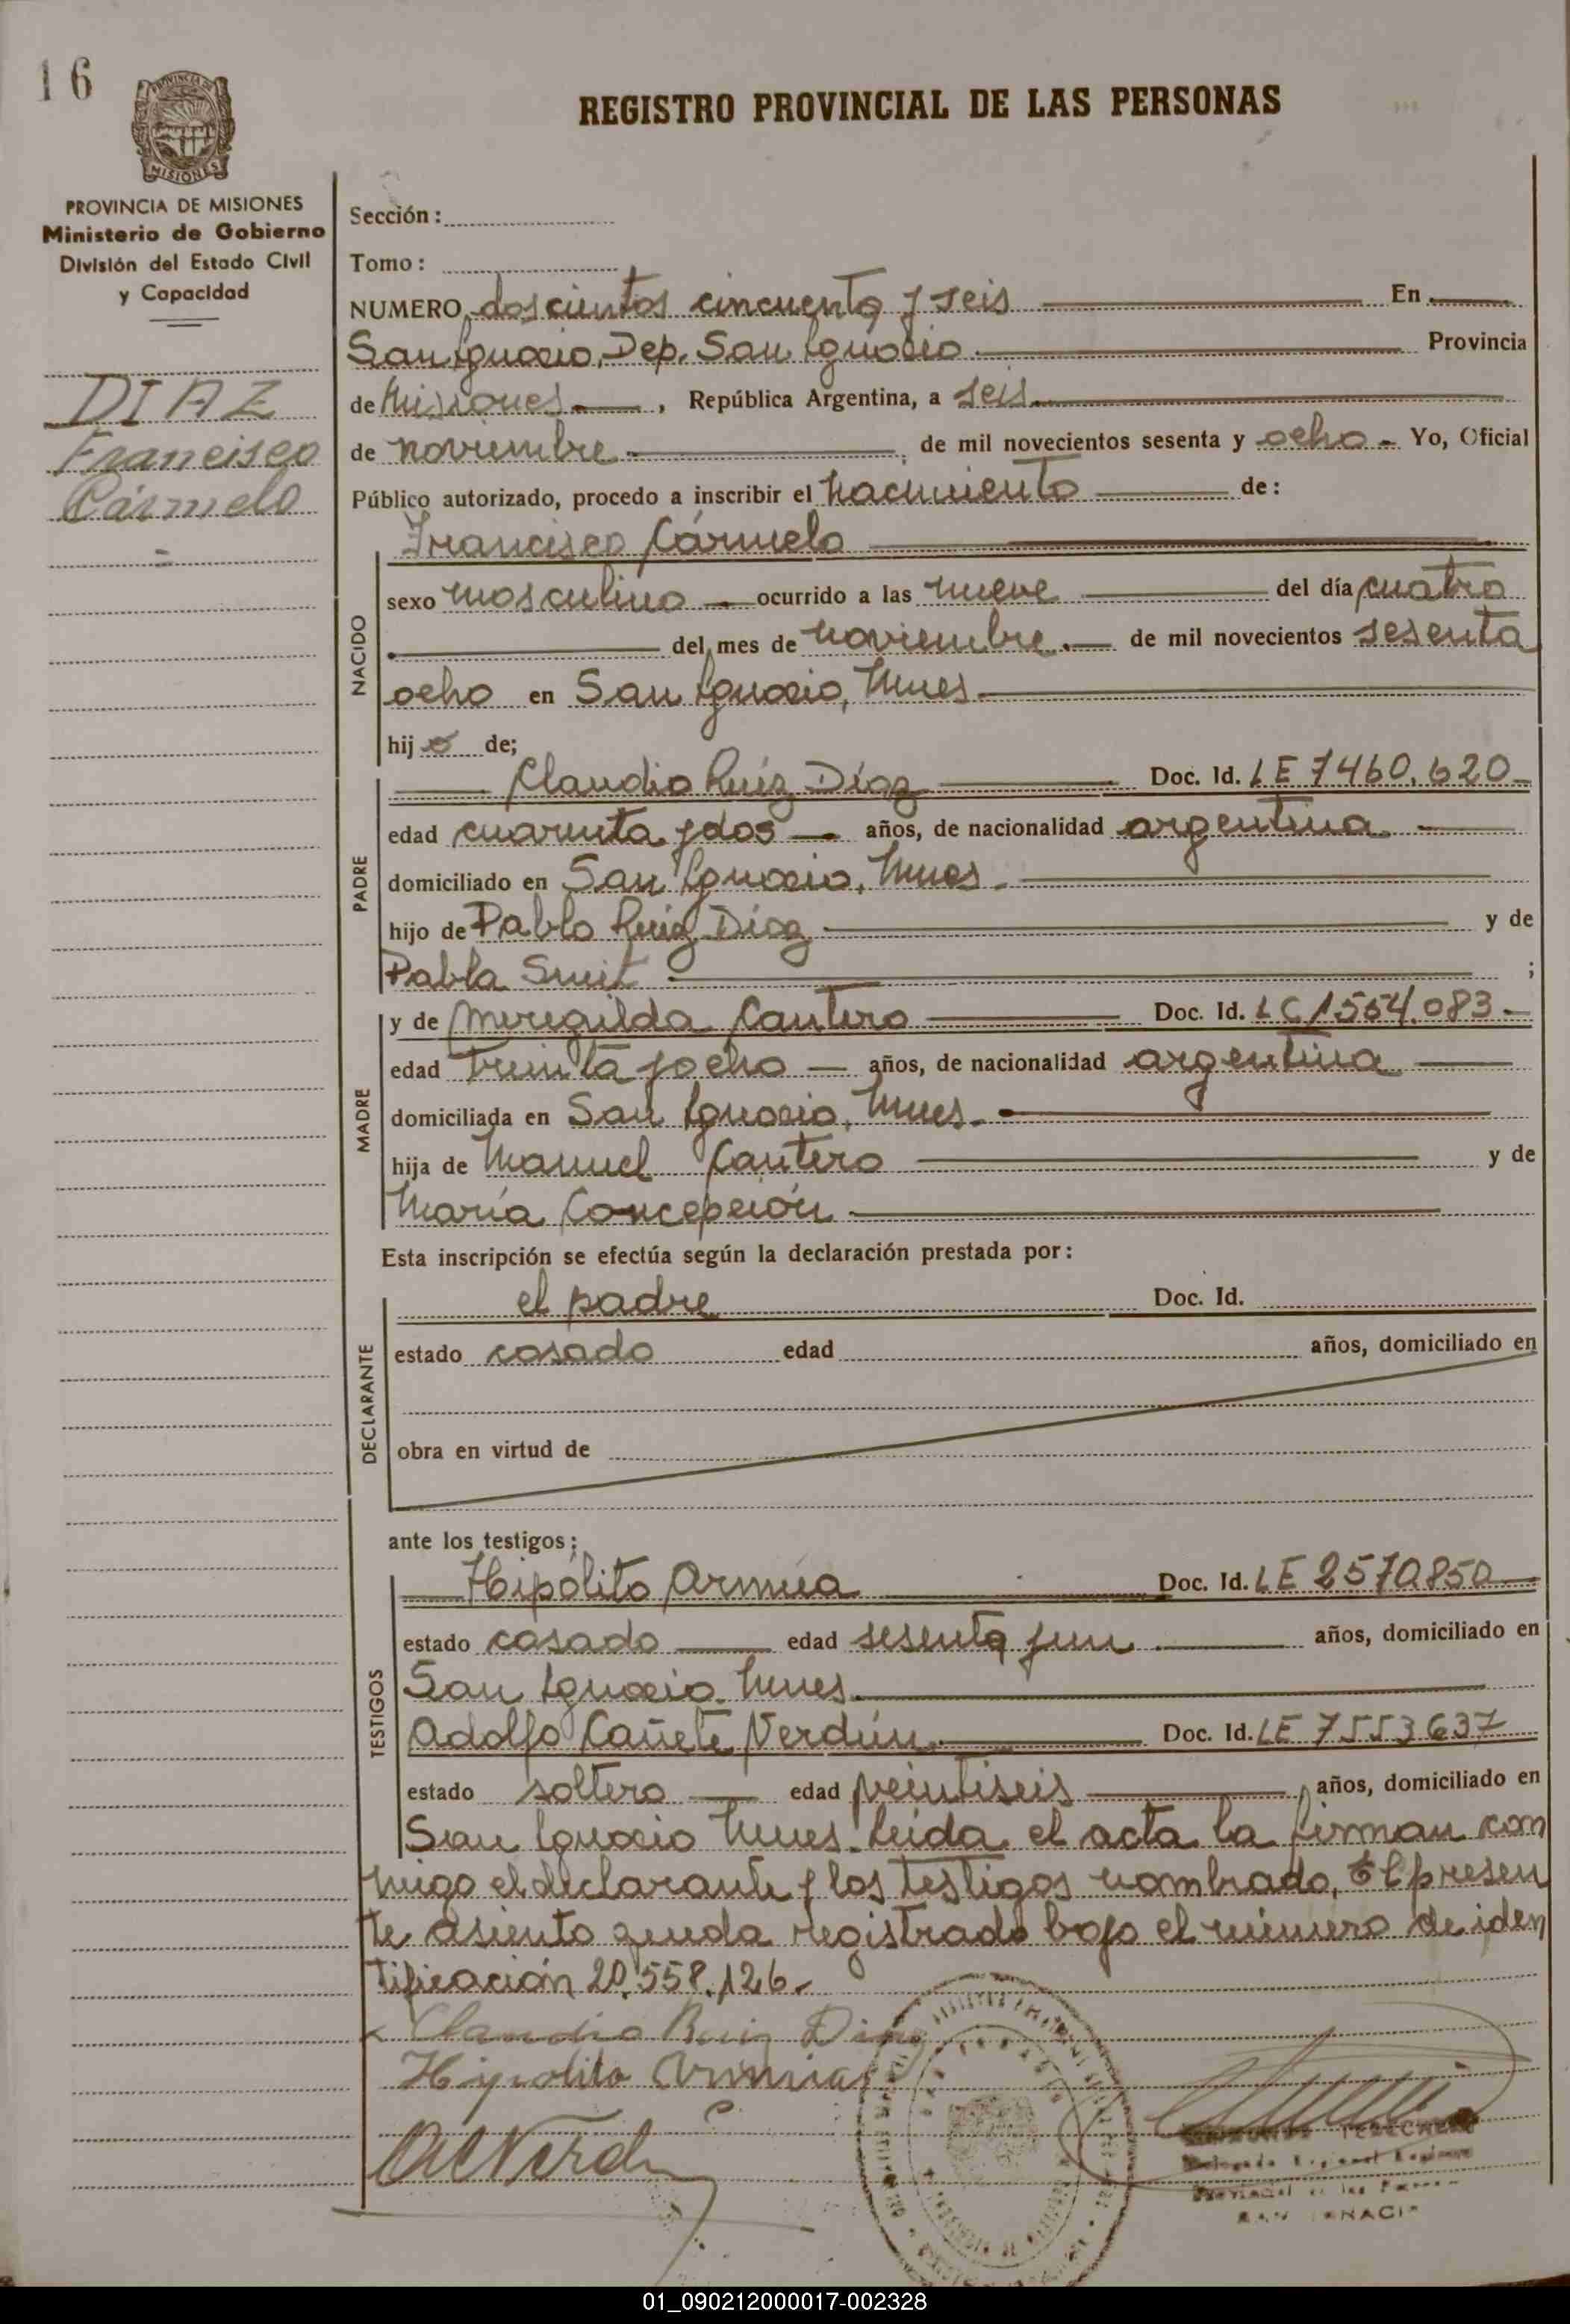 16
PROVINCIA DE
MISIONES
REGISTRO PROVINCIAL DE LAS PERSONAS
PROVINCIA DE MISIONES
Ministerio de Gobierno
División del Estado Civil
y Capacidad
DIAZ
Francisco
Cármelo
Sección:
Tomo:
NUMERO doscientos cincuenta y seis En
San Ignacio, Dep. San Ignacio Provincia
de Misiones, República Argentina, a seis
de noviembre de mil novecientos sesenta y ocho Yo, Oficial
Público autorizado, procedo a inscribir el nacimiento de:
Francisco Cármelo
NACIDO
sexo masculino ocurrido a las nueve del día cuatro
del mes de noviembre de mil novecientos sesenta
ocho en San Ignacio, Mnes
hijo de;
PADRE
Claudio Ruíz Díaz Doc. Id. LE 7460.620
edad cuarenta y dos años, de nacionalidad argentina
domiciliado en San Ignacio, Mnes.
hijo de Pablo Ruiz Díaz y de
Pabla Smit ;
MADRE
y de Meregilda Cantero Doc. Id. LC 1554.083
edad treinta y ocho años, de nacionalidad argentina
domiciliada en San Ignacio, Mnes.
hija de Manuel Cantero y de
María Concepción
Esta inscripción se efectúa según la declaración prestada por:
DECLARANTE
el padre Doc. Id.
estado casado edad años, domiciliado en
obra en virtud de
ante los testigos:
TESTIGOS
Hipólito Armúa Doc. Id. LE 2570850
estado casado edad sesenta y un años, domiciliado en
San Ignacio Mnes.
Adolfo Cañete Verdún Doc. Id. LE 7553637
estado soltero edad veintiseis años, domiciliado en
San Ignacio Mnes. Leida el acta la firman con
migo el declarante y los testigos nombrado, El presen
te asiento queda registrado bajo el número de iden
tificación 20.558.126.
Claudio Ruiz Diaz
Hipolito Armua
SAN IGNACIO
01_090212000017-002328